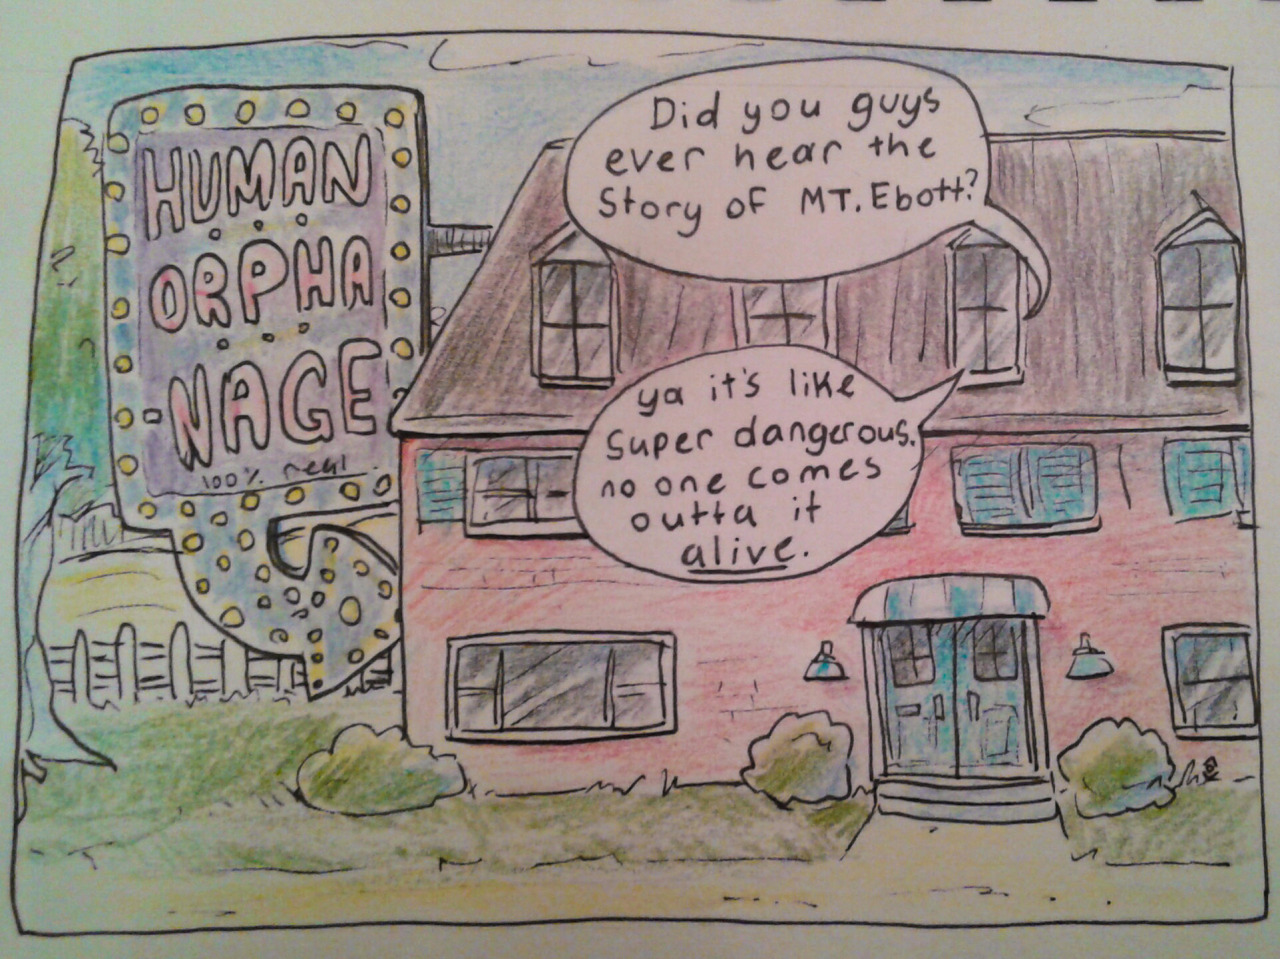 HUMAN
ORPHA
-NAGE
100% real
Did you guys
ever hear the
Story of MT. Ebott?
ya it's like
Super dangerous.
no one comes
outta it
alive.